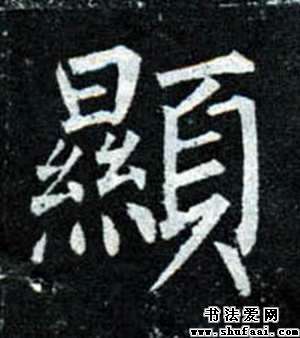 顯
书法爱网
www.shufaai.com